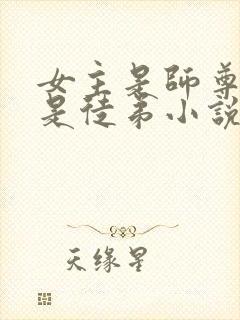 女主是師尊
是徒弟小説
天缘星